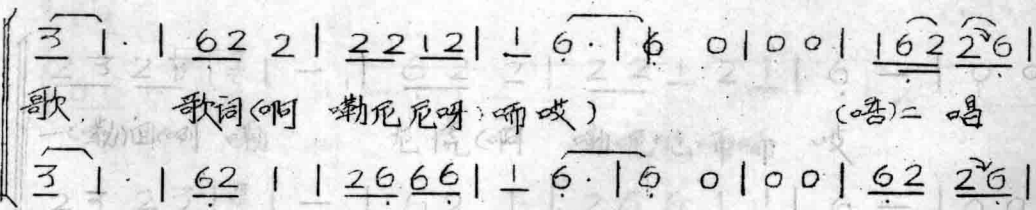 3 1 · | 62 2 | 22 12 | 1 6 · | 6 0 | 0 0 | 162 26 |
歌 歌词(啊 嘞尼尼呀:哂哎) (唔)二 唱
3 1 · | 62 1 | 26 66 | 1 6 · | 6 0 | 0 0 | 62 26 |